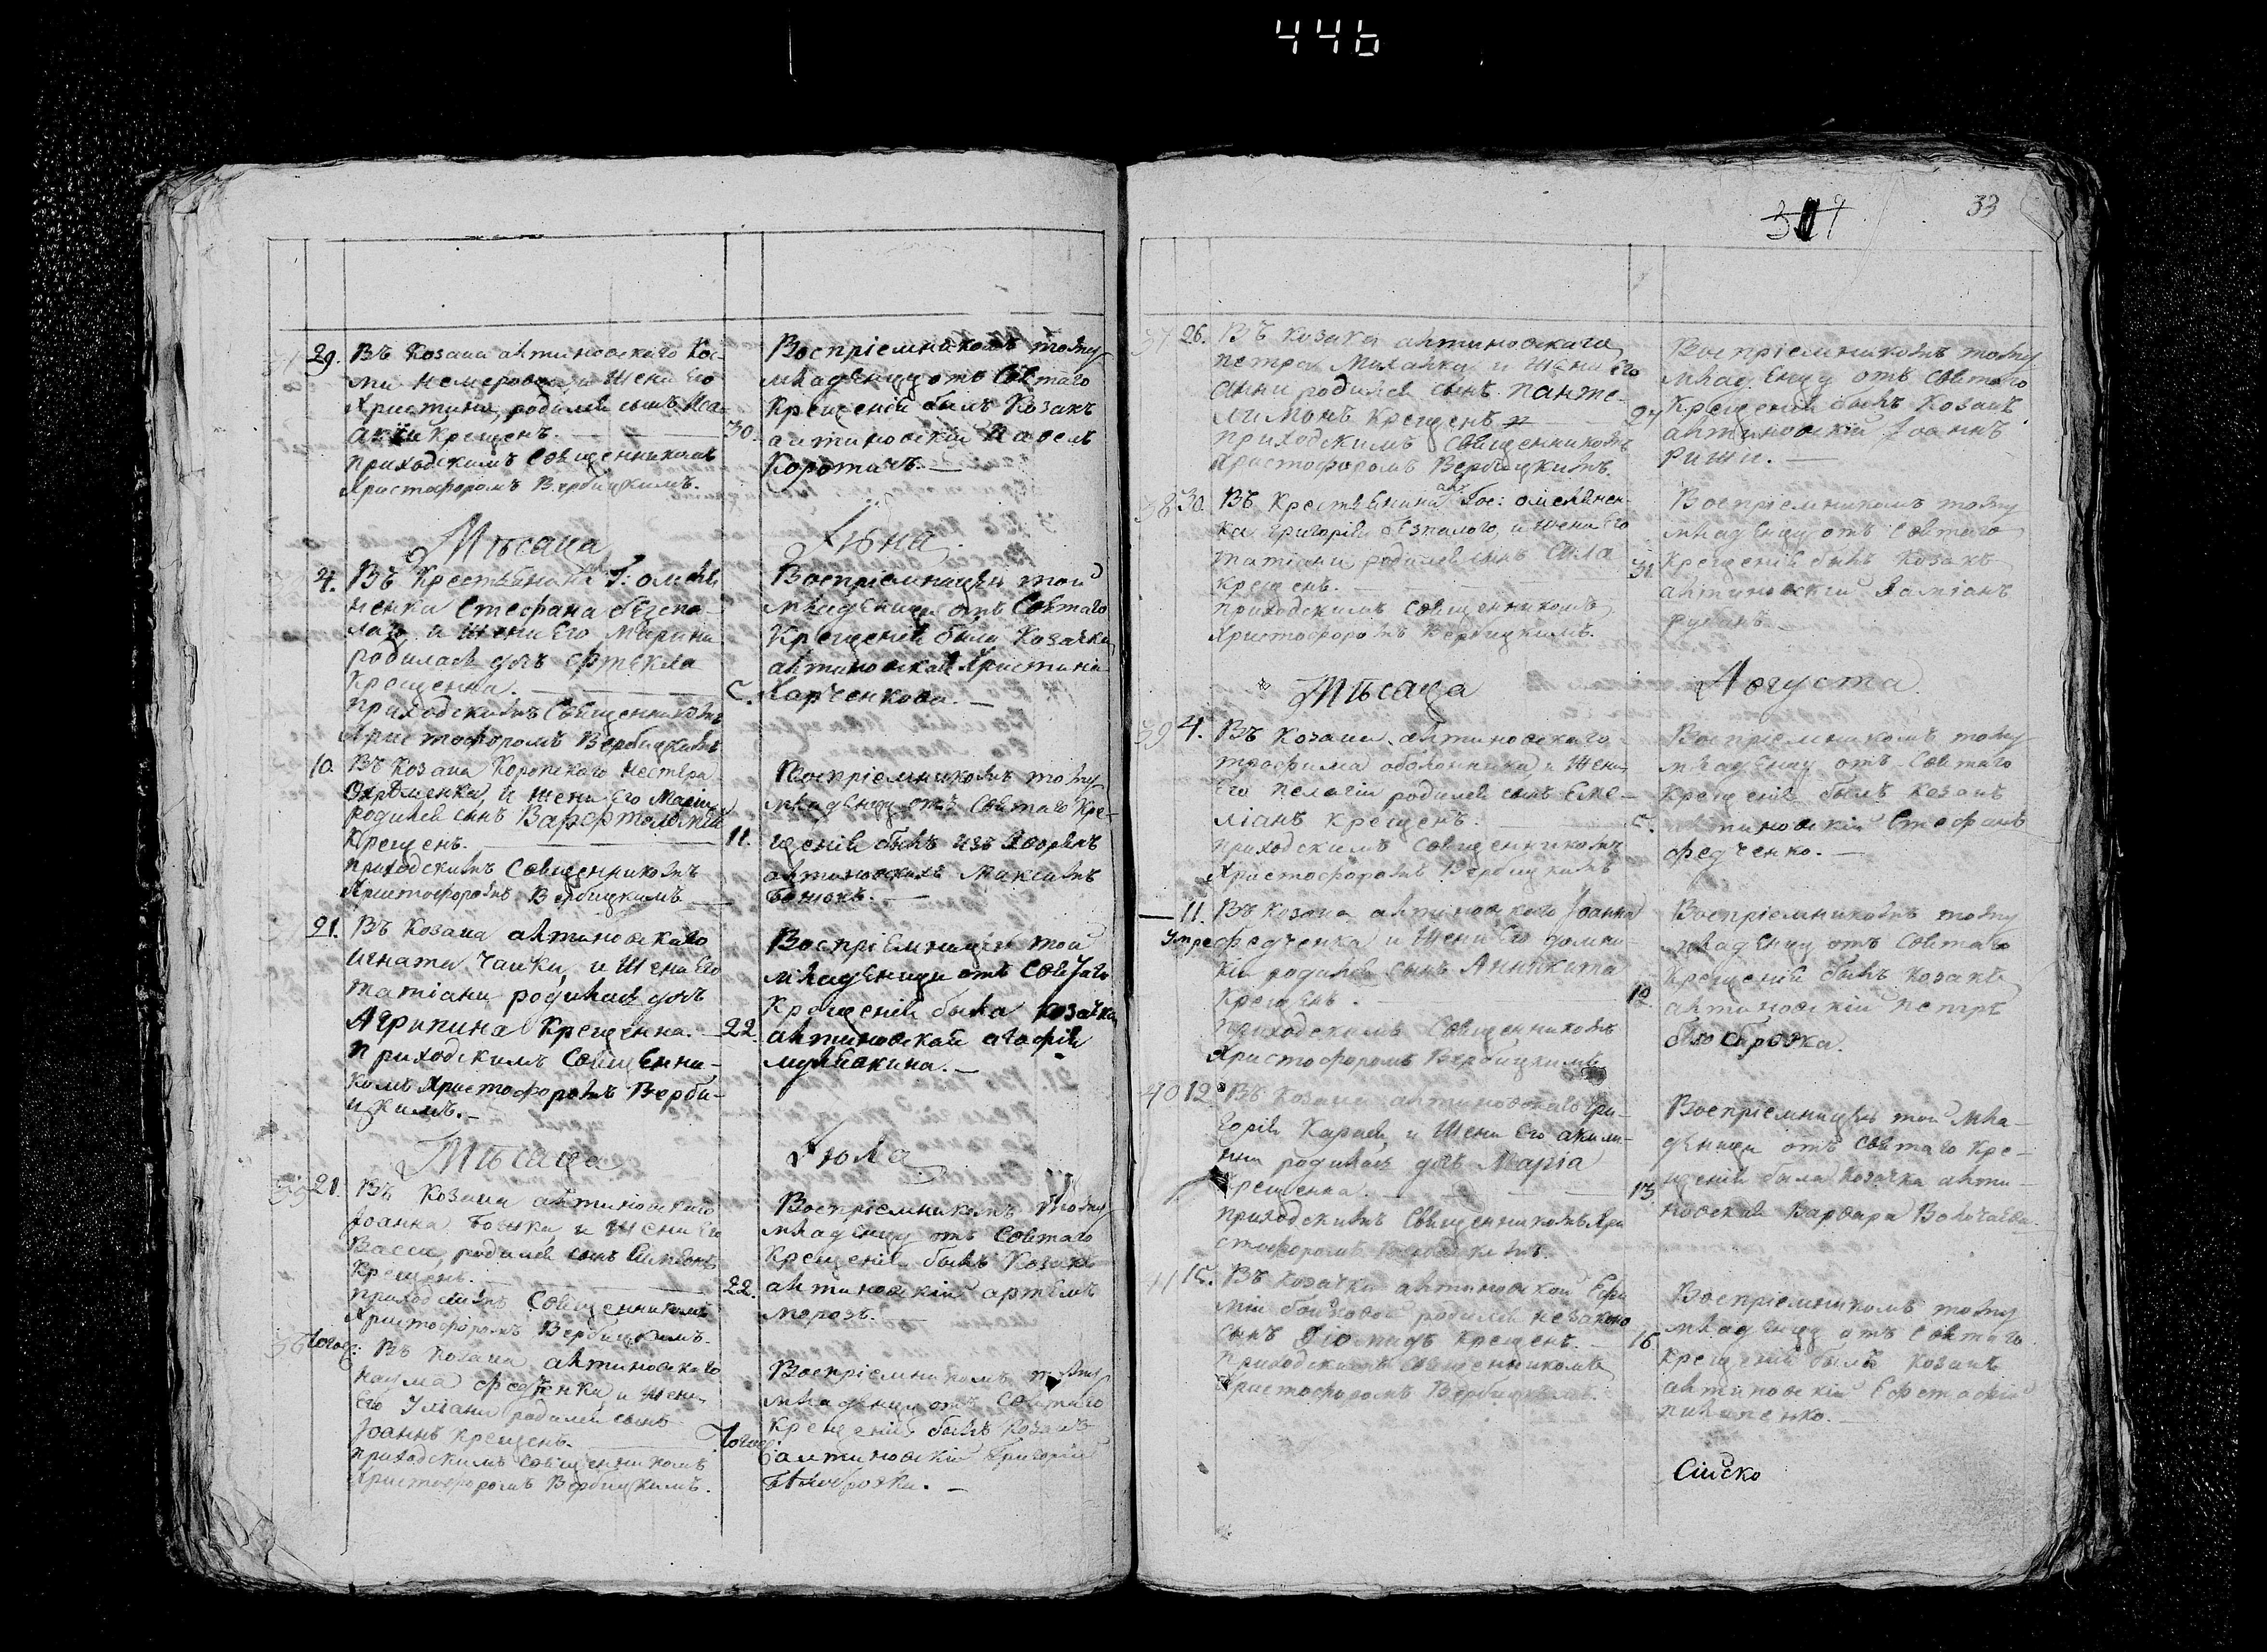 446
29. Въ Козака алтиновского Кос-
ми Немеровски и Жени Его
Христини, родился сынъ Иса-
акии Крещенъ.
приходскимъ Священникомъ
Христофоромъ Вербицкимъ.
30.
Воспріемникомъ тому
младенцу отъ Святаго
Крещенія былъ Козакъ
алтиновскій Павелъ
Коротичъ.
Мѣсаца Іюна
4. Въ Крестьянина Г: омеля
ненка Стефана безпа-
лаго и Жени Его Марини
родилась дочъ Фтекла
Крещенна.
приходскимъ Священникомъ
Христофоромъ Вербицкимъ
5.
Воспріемницею той
младеници отъ Святаго
Крещенія была Козачка
алтиновская Христина
Харченкова.
10. Въ Козака Коропского Нестера
и жени Его Маріи
родился сынъ Варфтоломей
Крещенъ.
приходскимъ Священникомъ
Христофоромъ Вербицкимъ
11.
Воспріемникомъ тому
младенцу отъ Святаго Кре-
щенія былъ изъ дворянъ
алтиновскихъ Максимъ
21. Въ Козака алтиновского
Игната Чайки, и Жени Его
татіани родилась дочъ
Агрипина Крещенна.
приходскимъ Священни-
комъ Христофоромъ Верби-
цкимъ.
22.
Воспріемницею той
младеници отъ Святаго
Крещенія была Козачка
алтиновская агафія
Мѣсаца Іюла
35 21. Въ Козака алтиновского
Іоанна и Жени Его
Васси, родился сынъ Симеонъ
Крещенъ.
приходскимъ Священникомъ
Христофоромъ Вербицкимъ.
22.
Воспріемникомъ тому
младенцу отъ Святаго
Крещенія былъ Козакъ
алтиновскій артемъ
морозъ.
36 тогоє: Въ Козака алтиновского
Наума федченка, и жени
Его Уліани родился сынъ
Іоаннъ Крещенъ.
приходскимъ священникомъ
Христофоромъ Вербицкимъ.
тогоє
Воспріемникомъ тому
младенцу отъ Святаго
Крещенія былъ Козакъ
алтиновскій Григорій
Бѣлобровки.
317 33
37 26. Въ Козака алтиновскаго
петра Михалка и Жени Его
анни родился сынъ панте-
лимонъ Крещенъ
приходскимъ Священникомъ
Христофоромъ Вербицкимъ
27
Воспріемникомъ тому
младенцу отъ Святаго
Крещенія былъ Козакъ
алтиновскій Іоаннъ
Рижи.
38 30. Въ Крестьянина Гос: омелянен-
ка Григорія безпалого, и жени Его
татіани родился сынъ Сила
Крещенъ.
приходскимъ священникомъ
Христофоромъ Вербицкимъ.
31.
Воспріемникомъ тому
младенцу отъ Святаго
Крещенія былъ Козакъ
алтиновскій Даміанъ
рубанъ.
Мѣсаца Августа
39 4. Въ Козака алтиновскаго
трофима оболонника, и Жени
Его Пелагіи родился сынъ Еме-
ліанъ Крещенъ.
приходскимъ Священникомъ
Христофоромъ Вербицкимъ
5.
Воспріемникомъ тому
младенцу отъ Святаго
Крещенія былъ Козакъ
алтиновскій Стефанъ
федченко.
11. Въ Козака алтиновского Іоанна
умре федченка и Жени Его домни-
кіи родился сынъ Анникита
Крещенъ.
приходскимъ Священникомъ
Христофоромъ Вербицкимъ
12.
Воспріемникомъ тому
младенцу отъ Святаго
Крещенія былъ Козакъ
алтиновскій Петръ
бѣлобровка.
40 12. Въ Козака алтиновского Гри-
горія Карася, и Жени Его акили-
ни родилась дочъ Марія
Крещенна.
приходскимъ Священникомъ Хри
стофоромъ Вербицкимъ.
13
Воспріемницею той мла-
деници отъ святаго Кре-
щенія была Козачка алти-
новская Варвара
41 15. Въ Козачки алтиновской Евфи
міи бойковой родился незаконо
сынъ Діомидъ Крещенъ.
приходскимъ священникомъ
Христофоромъ Вербицкимъ.
16.
Воспріемникомъ тому
младенцу отъ Святаго
Крещенія былъ Козакъ
алтиновскій Евстафій
пилипенко.